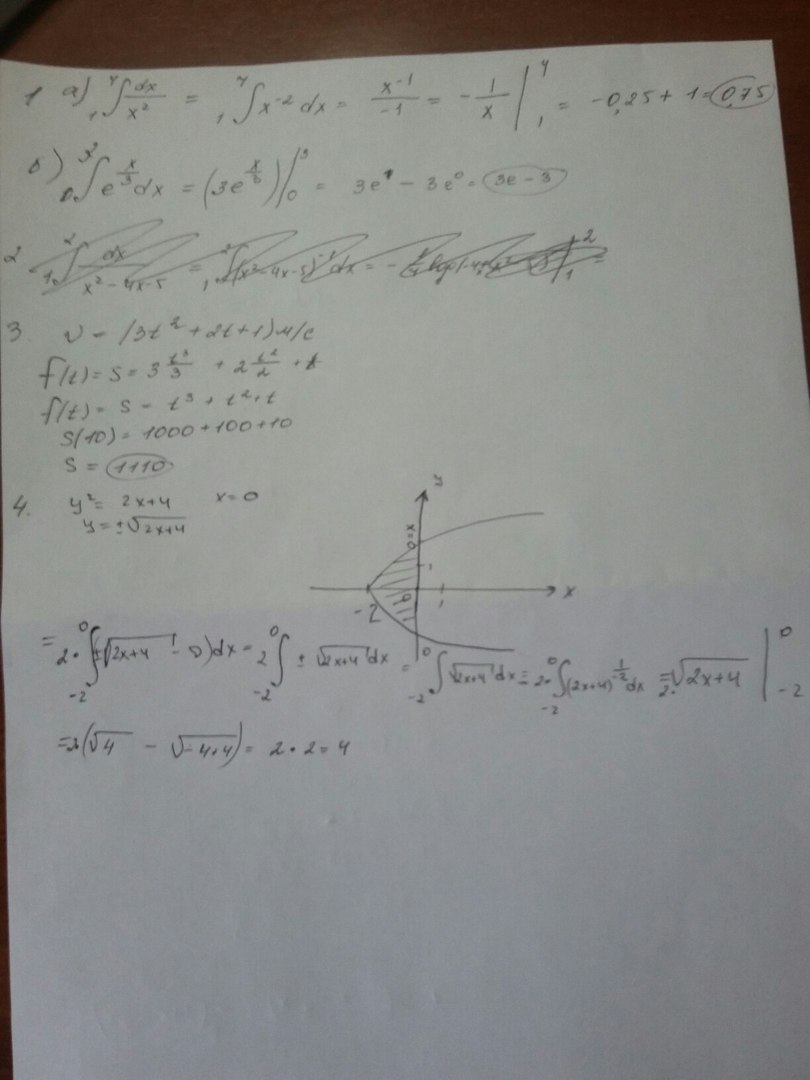 1 а) ₁∫⁴ dx/x² = ₁∫⁴ x⁻² dx = x⁻¹/-1 = -1/x |₁⁴ = -0,25 + 1 = 0,75
б) ₀∫³ e^(x/3) dx = (3e^(x/3)) |₀³ = 3e¹ - 3e⁰ = 3e - 3
2 ₁∫² dx/(x² - 4x - 5) = ₁∫² (x² - 4x - 5)⁻¹ dx = -
3. v = (3t² + 2t + 1) м/с
f(t) = S = 3 t³/3 + 2 t²/2 + t
f(t) = S = t³ + t² + t
S(10) = 1000 + 100 + 10
S = 1110
4. y² = 2x+4 x = 0
y = ±√(2x+4)
y
x=0
1
-2 0 1 x
= 2· ₋₂∫⁰ (±√(2x+4) - 0) dx = 2 ₋₂∫⁰ ± √(2x+4) dx = ₋₂∫⁰ √(2x+4) dx = 2· ₋₂∫⁰ (2x+4)^(1/2) dx = 2·√(2x+4) |₋₂⁰
= 2(√4 - √(-4+4)) = 2·2 = 4